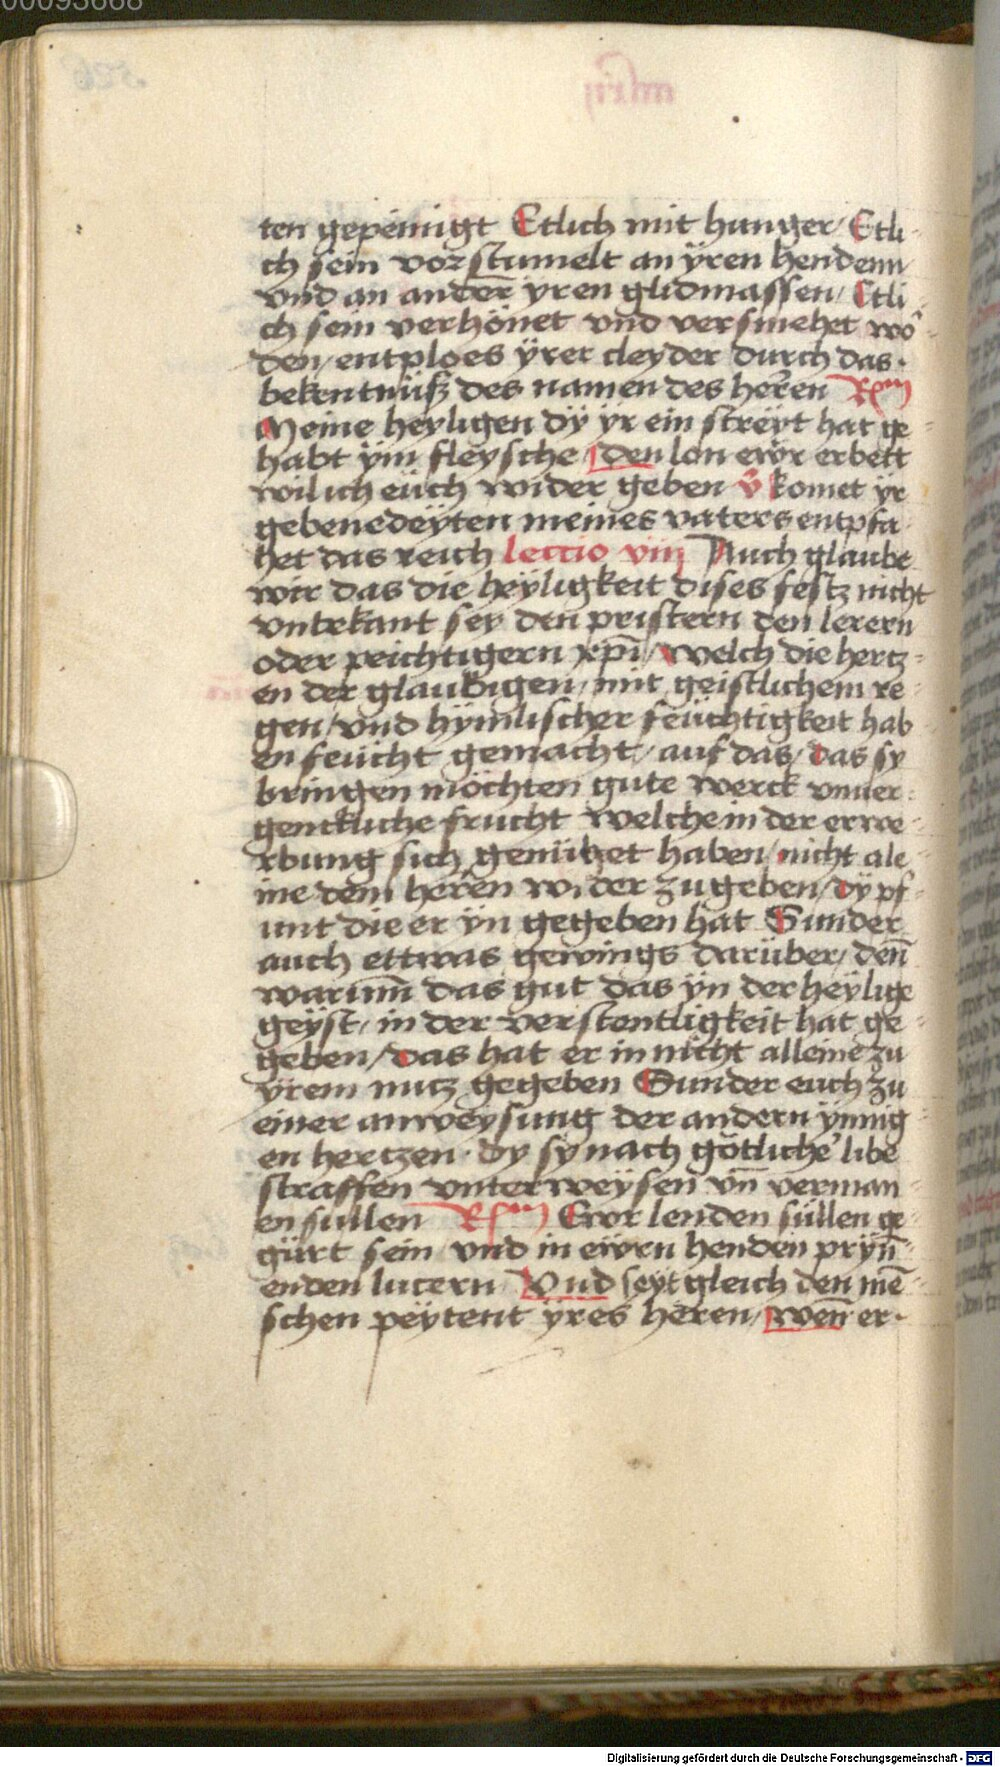 00093668
ten gepeinigt Etlich mit hunger / Etli-
ch sein vorstumelt an ÿren hendenn
vnd an andeȓ yren glidmassen / Etli-
ch sein verhönet vnd versmehet wo᷑-
den / entploes ÿrer cleyder durch das ·
bekentnüß des namen des heȓen Rm
Meine heyligen dÿ yr ein streyt hat ge-
habt ÿm fleysche / den lon ewr erbeit
wil ich eüch wider geben v̄ komet ÿr
gebenedeÿten meines vaters entpfa-
het das reich lectio viij Auch glaube
wir das die heÿligkeit dises festz nicht
vnbekant sey den pristern den lerern
oder peichtigern xp̄i / welch die hertz-
en der glaubigen / mit geistlichem re-
gen / vnd hÿmlischer feüchtigkeit hab
en feücht gemacht / auf das / das sy
bringen möchten gute werck vnuer-
genckliche frucht welche in der erwe-
rbung sich gemühet haben / nicht ale-
ine dem heȓen wider zu geben / dÿ pf-
unt die er ÿn gegeben hat Sunder
auch ettwas gewings darüber / deñ
warum̄ das gut das ÿn der heÿlige
geÿst / in der verstentligkeit hat ge-
geben / das hat er in nicht alleine zu
yrem nutz gegeben Sunder euch zu
einer anweysung der andern ÿnnig-
en hertzen · dy sy nach götliche᷑ libe
straffen vnterweÿsen vn̄ verman-
en sullen Rm Ewr lenden süllen ge-
gürt sein / vnd in ewrn henden prÿn̄-
enden lucern / Vnd seÿt gleich den mē-
schen peÿtent ÿres heren / weñ er ·
Digitalisierung gefördert durch die Deutsche Forschungsgemeinschaft - DFG